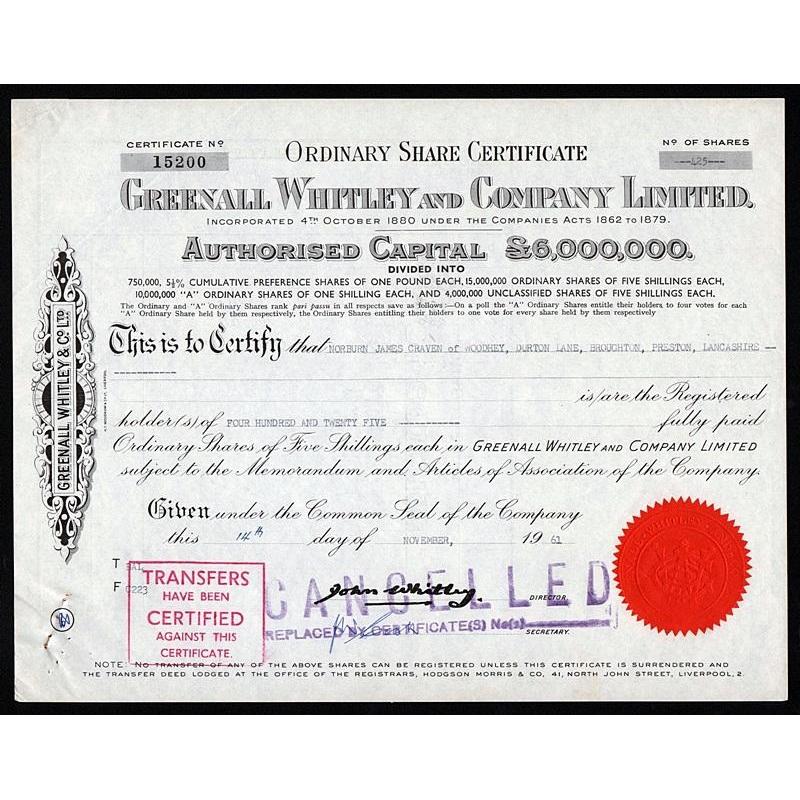 CERTIFICATE Nº
15200
ORDINARY SHARE CERTIFICATE
Nº OF SHARES
---425---
GREENALL WHITLEY AND COMPANY LIMITED.
INCORPORATED 4TH OCTOBER 1880 UNDER THE COMPANIES ACTS 1862 TO 1879.
AUTHORISED CAPITAL £6,000,000.
DIVIDED INTO
750,000, 5½% CUMULATIVE PREFERENCE SHARES OF ONE POUND EACH, 15,000,000 ORDINARY SHARES OF FIVE SHILLINGS EACH,
10,000,000 "A" ORDINARY SHARES OF ONE SHILLING EACH, AND 4,000,000 UNCLASSIFIED SHARES OF FIVE SHILLINGS EACH.
The Ordinary and "A" Ordinary Shares rank pari passu in all respects save as follows:—On a poll the "A" Ordinary Shares entitle their holders to four votes for each
"A" Ordinary Share held by them respectively, the Ordinary Shares entitling their holders to one vote for every share held by them respectively
This is to Certify that NORBURN JAMES CRAVEN of WOODHEY, DURTON LANE, BROUGHTON, PRESTON, LANCASHIRE --
------------
is/are the Registered
holder(s) of FOUR HUNDRED AND TWENTY FIVE ------------ fully paid
Ordinary Shares of Five Shillings each in GREENALL WHITLEY AND COMPANY LIMITED
subject to the Memorandum and Articles of Association of the Company.
Given under the Common Seal of the Company
this 14th day of NOVEMBER, 1961
GREENALL WHITLEY & Co LTD
T BAL
F 0223
TRANSFERS
HAVE BEEN
CERTIFIED
AGAINST THIS
CERTIFICATE.
CANCELLED
John Whitley.
DIRECTOR.
REPLACED BY CERTIFICATE(S) No(s)
SECRETARY.
NOTE: NO TRANSFER OF ANY OF THE ABOVE SHARES CAN BE REGISTERED UNLESS THIS CERTIFICATE IS SURRENDERED AND
THE TRANSFER DEED LODGED AT THE OFFICE OF THE REGISTRARS, HODGSON MORRIS & CO, 41, NORTH JOHN STREET, LIVERPOOL, 2.